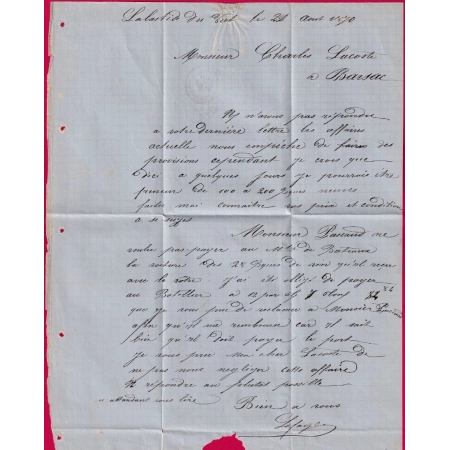 Labastide du Vert le 24 Aout 1870
Monsieur Charles Lacoste
à Barsac
Ny n'avons pas répondre
a votre dernière lettre les affaires
actuelle nous empêche de faires des
provisions cependant je crois que
dici a quelques jours je pourrois être
preneur de 100 a 200
faites moi connaitre vos prix et condition
a se sujet
Monsieur ne
voulu pas payer au de Bateaux
la voiture des 28 de vin qu'il reçu
avec le votre j'ai été oblige de payer
au Batellier a 12 par
que je vous prie de reclamer a Monsieur
afin qu'il me rembourse car il sait
bien qu'il doit payer le port
Je vous prie mon cher Lacoste de
ne pas nous negliger cette affaire
et répondre au plutot possible
en attendant vous lire Bien a vous